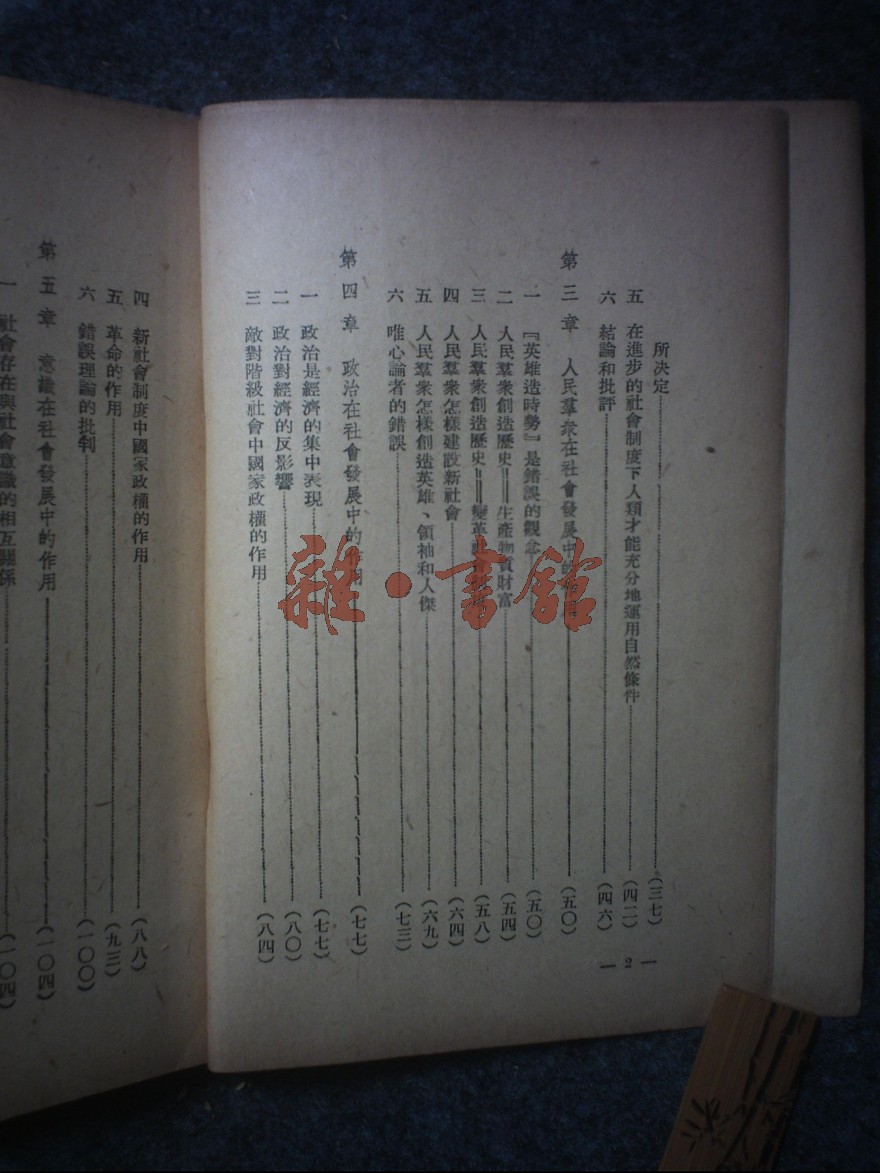 所決定……(三七)
五 在進步的社會制度下人類才能充分地運用自然條件……(四二)
六 結論和批評……(四六)
第三章 人民羣衆在社會發展中的……(五〇)
一 『英雄造時勢』是錯誤的觀念……(五〇)
二 人民羣衆創造歷史——生產物質財富……(五四)
三 人民羣衆創造歷史——變革……(五八)
四 人民羣衆怎樣建設新社會……(六四)
五 人民羣衆怎樣創造英雄、領袖和人傑……(六九)
六 唯心論者的錯誤……(七三)
第四章 政治在社會發展中的作用……(七七)
一 政治是經濟的集中表現……(七七)
二 政治對經濟的反影響……(八〇)
三 敵對階級社會中國家政權的作用……(八四)
— 2 —
四 新社會制度中國家政權的作用……(八八)
五 革命的作用……(九三)
六 錯誤理論的批判……(一〇〇)
第五章 意識在社會發展中的作用……(一〇四)
一 社會存在與社會意識的相互關係……(一〇四)
雜·書館